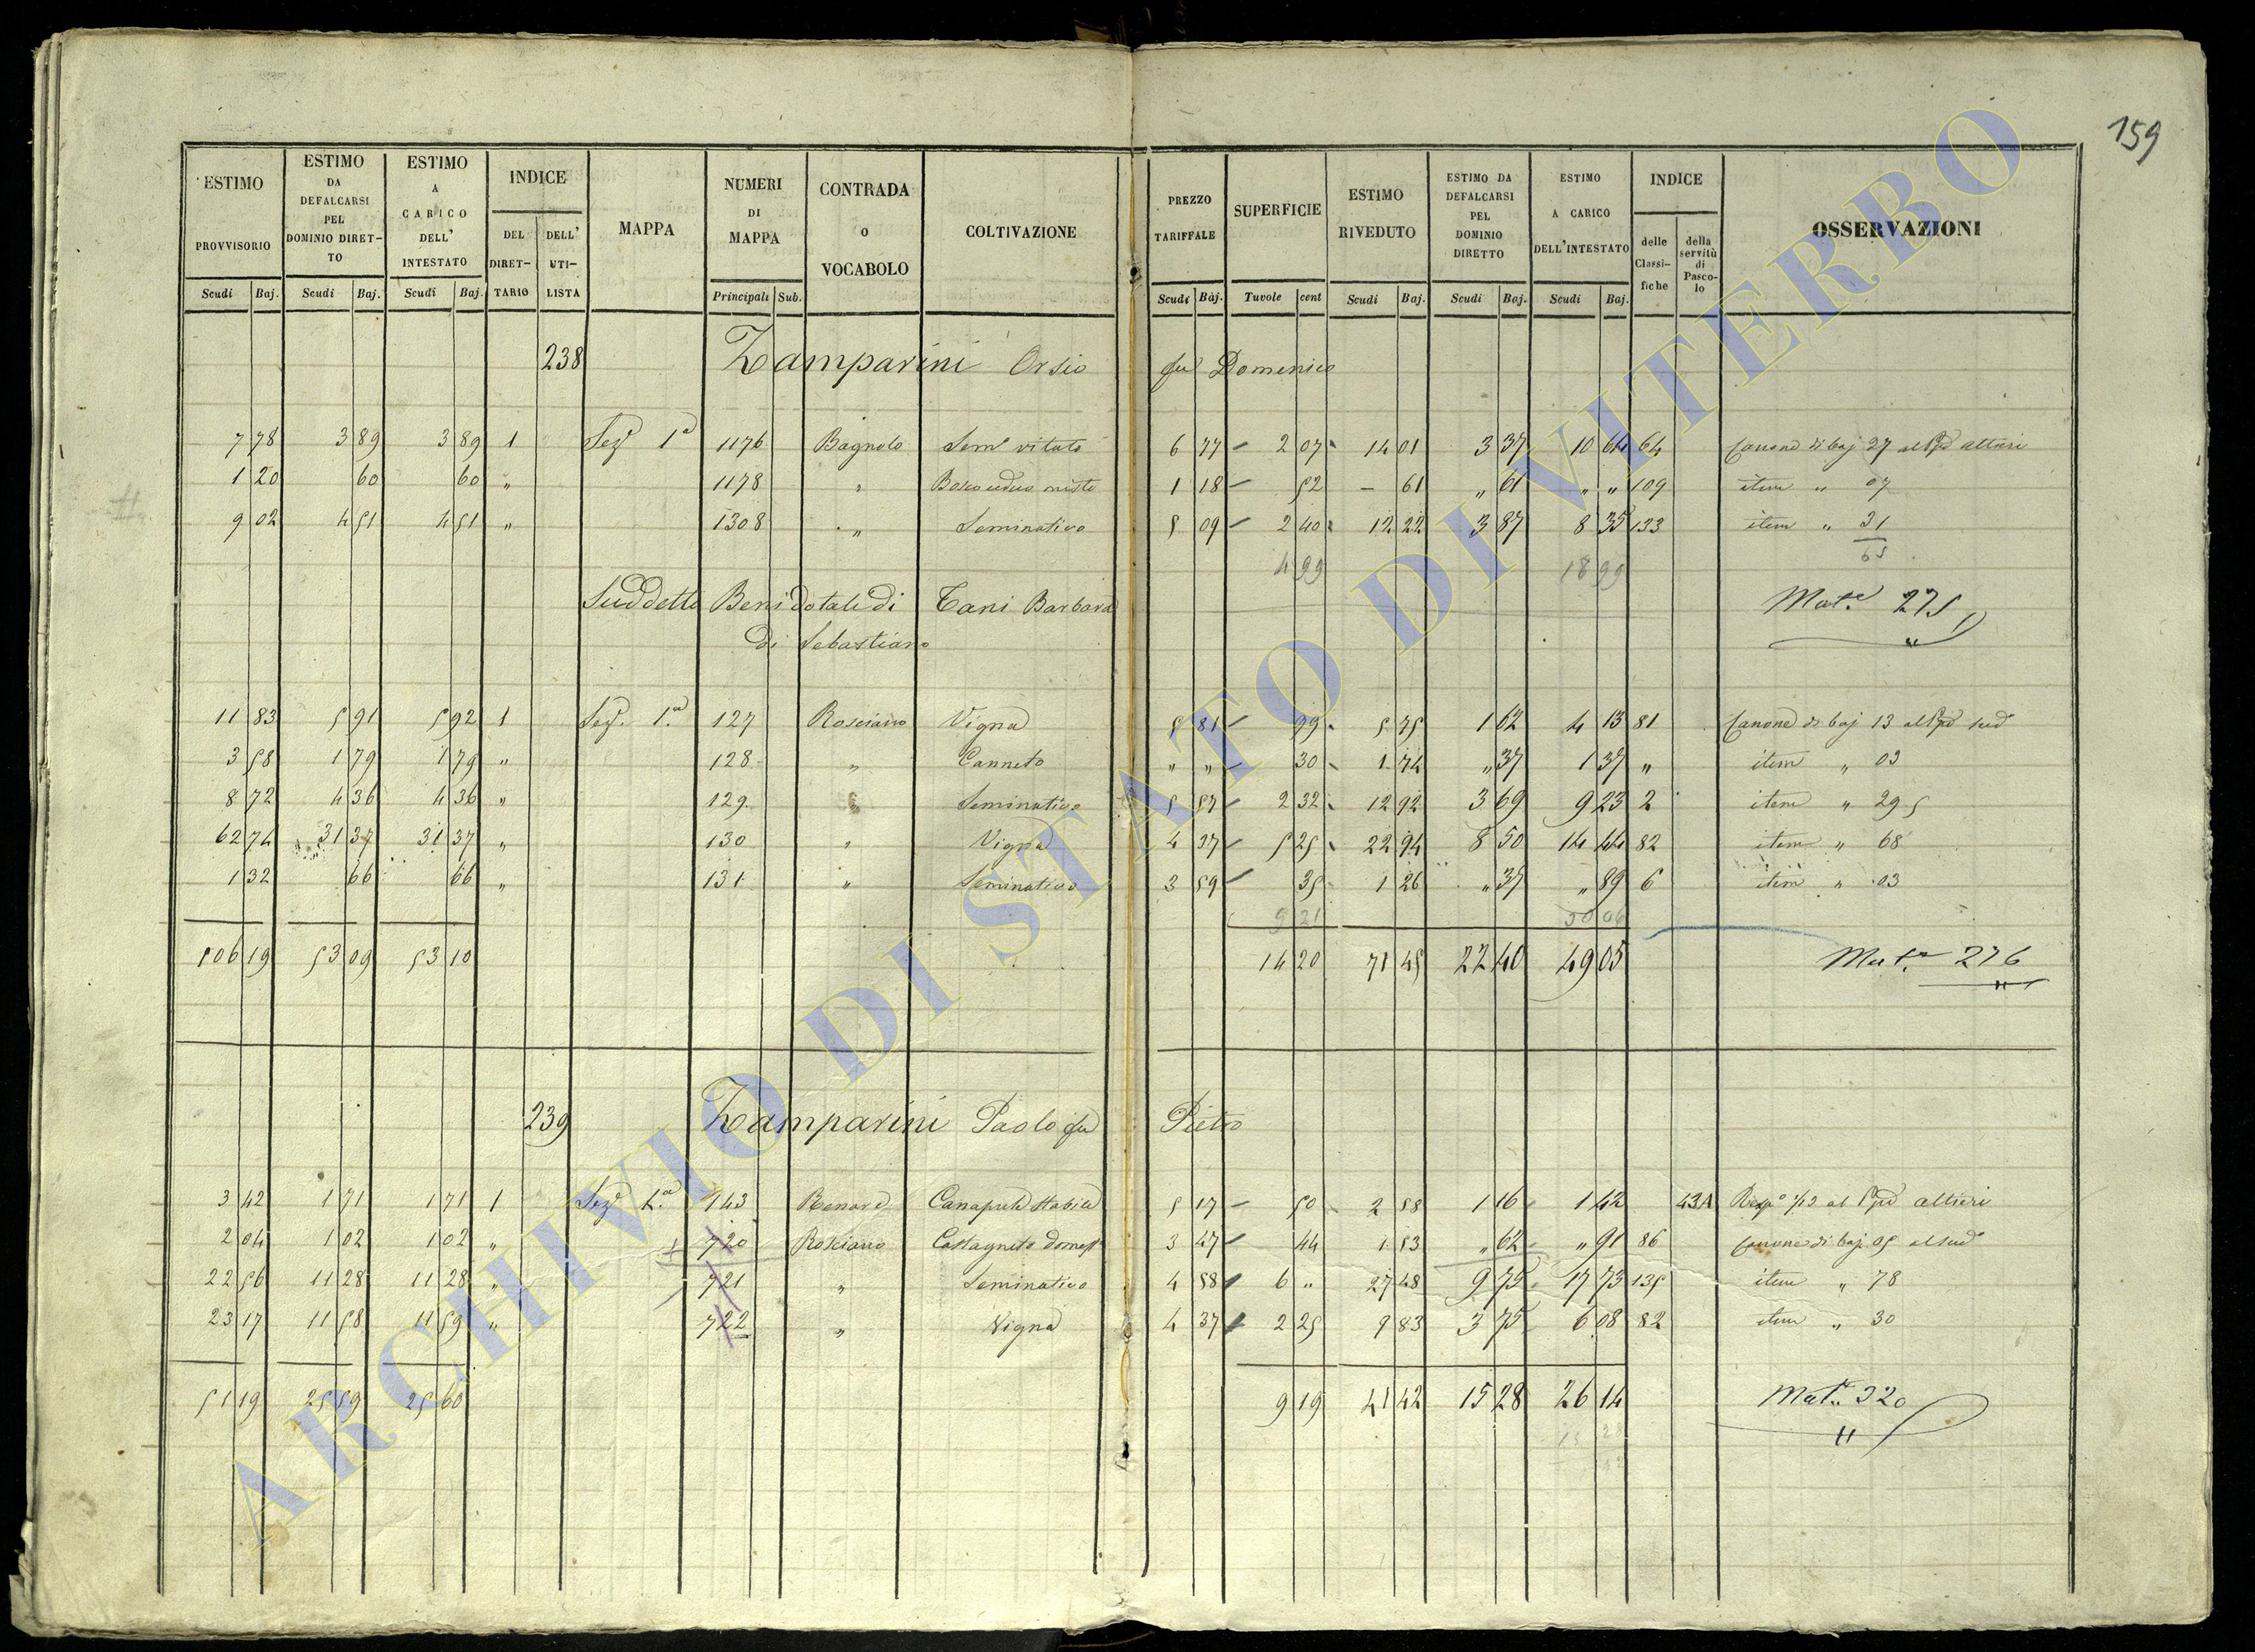 159
ESTIMO PROVVISORIO Scudi Baj.
ESTIMO DA DEFALCARSI PEL DOMINIO DIRET-TO Scudi Baj.
ESTIMO A CARICO DELL' INTESTATO Scudi Baj.
INDICE DEL DIRET-TARIO DELL' UTI-LISTA
MAPPA
NUMERI DI MAPPA Principali Sub.
CONTRADA O VOCABOLO
COLTIVAZIONE
PREZZO TARIFFALE Scudi Baj.
SUPERFICIE Tuvole cent
ESTIMO RIVEDUTO Scudi Baj.
ESTIMO DA DEFALCARSI PEL DOMINIO DIRETTO Scudi Baj.
ESTIMO A CARICO DELL'INTESTATO Scudi Baj.
INDICE delle Classi-fiche della servitù di Pasco-lo
OSSERVAZIONI
238 Zamparini Orsio fu Domenico
7 78 3 89 3 89 1 Sez. 1a 1176 Bagnolo Sem. vitato 6 77 2 07 14 01 3 37 10 64 64 Canone di baj 27 al Ppe altieri
1 20 60 60 " 1178 " Bosco ceduo misto 1 18 52 - 61 " 61 " " 109 item " 07
9 02 4 51 4 51 " 1308 " Seminativo 5 09 2 40 12 22 3 87 8 35 133 item " 31
4 99 18 99 65
Suddetto Beni dotali di Tani Barbara Mat.e 275
di Sebastiano
11 83 5 91 5 92 1 Sez. 1.a 127 Rosciano Vigna 5 81 99 5 75 1 62 4 13 81 Canone di baj 13 al Ppe sud
3 58 1 79 1 79 " 128 " Canneto " " 30 1 74 " 37 1 37 " item " 03
8 72 4 36 4 36 " 129 " Seminativo 5 57 2 32 12 92 3 69 9 23 2 item " 29 5
62 74 31 37 31 37 " 130 " Vigna 4 37 5 25 22 94 8 50 14 44 82 item " 68
1 32 66 66 " 131 " Seminativo 3 59 35 1 26 " 37 " 89 6 item " 03
9 21 30 06
106 19 53 09 53 10 14 20 71 45 22 40 49 05 Mat.e 276
239 Zamparini Paolo fu Pietro
3 42 1 71 1 71 1 Sez. 1.a 143 Canapule stabile 5 17 50 2 58 1 16 1 42 43A 1/13 al Ppe altieri
2 04 1 02 1 02 " 720 Rosciano Castagneto domest 3 47 44 1 53 " 62 " 91 86 Canone di baj 05 al sud
22 56 11 28 11 28 " 721 " Seminativo 4 58 6 " 27 48 9 75 17 73 135 item " 78
23 17 11 58 11 59 " 722 " Vigna 4 37 2 25 9 83 3 75 6 08 82 item " 30
51 19 25 59 25 60 9 19 41 42 15 28 26 14 Mat. 320
ARCHIVIO DI STATO DI VITERBO